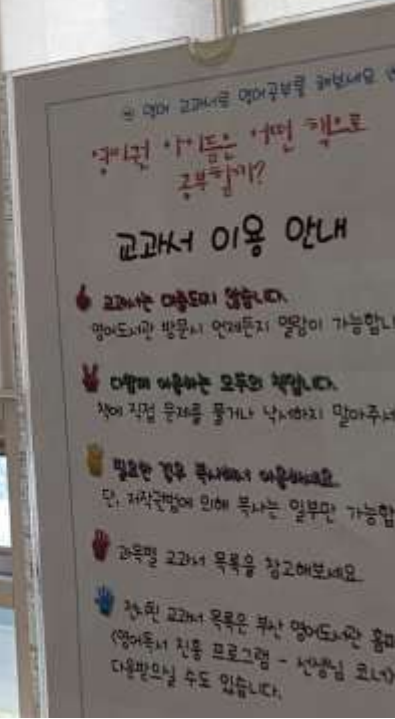 영어 교과서로 영어공부를 해보세요
영미권 아이들은 어떤 책으로
공부할까?
교과서 이용 안내
교과서는 대출되지 않습니다.
영어도서관 방문시 언제든지 열람이 가능합니
다함께 이용하는 모두의 책입니다.
책에 직접 문제를 풀거나 낙서하지 말아주세
필요한 경우 복사해서 이용하세요.
단, 저작권법에 의해 복사는 일부만 가능합
과목별 교과서 목록을 참고해보세요.
교과서 목록은 부산 영어도서관 홈페
(영어독서 진흥 프로그램 - 선생님 코너)
다운받으실 수도 있습니다.